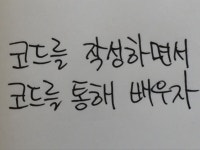 코드를 작성하면서
코드를 통해 배우자